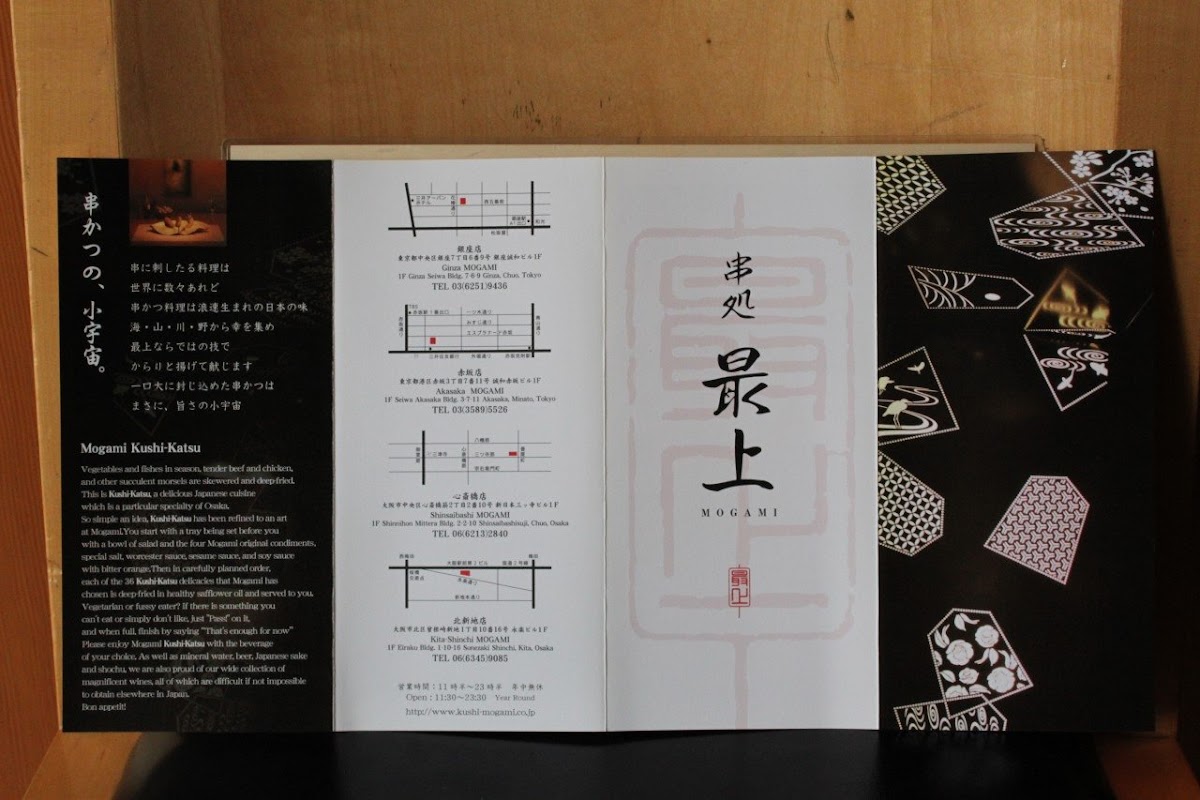 串かつの、小宇宙。
串に刺したる料理は
世界に数々あれど
串かつ料理は浪速生まれの日本の味
海・山・川・野から幸を集め
最上ならではの技で
からりと揚げて献じます
一口大に封じ込めた串かつは
まさに、旨さの小宇宙
Mogami Kushi-Katsu
Vegetables and fishes in season, tender beef and chicken,
and other succulent morsels are skewered and deep-fried.
This is Kushi-Katsu, a delicious Japanese cuisine
which is a particular specialty of Osaka.
So simple an idea, Kushi-Katsu has been refined to an art
at Mogami.You start with a tray being set before you
with a bowl of salad and the four Mogami original condiments,
special salt, worcester sauce, sesame sauce, and soy sauce
with bitter orange,Then in carefully planned order,
each of the 36 Kushi-Katsu delicacies that Mogami has
chosen is deep-fried in healthy safflower oil and served to you.
Vegetarian or fussy eater? If there is something you
can't eat or simply don't like, just "Pass!" on it,
and when full, finish by saying "That's enough for now"
Please enjoy Mogami Kushi-Katsu with the beverage
of your choice. As well as mineral water, beer, Japanese sake
and shochu, we are also proud of our wide collection of
magnificent wines, all of which are difficult if not impossible
to obtain elsewhere in Japan.
Bon appetit!
銀座店
東京都中央区銀座7丁目6番9号 銀座誠和ビル1F
Ginza MOGAMI
1F Ginza Seiwa Bldg. 7-6-9 Ginza, Chuo, Tokyo
TEL 03(6251)9436
赤坂店
東京都港区赤坂3丁目7番11号 誠和赤坂ビル1F
Akasaka MOGAMI
1F Seiwa Akasaka Bldg. 3-7-11 Akasaka, Minato, Tokyo
TEL 03(3589)5526
心斎橋店
大阪市中央区心斎橋筋2丁目2番10号 新日本三ッ寺ビル1F
Shinsaibashi MOGAMI
1F Shinnihon Mittera Bldg. 2-2-10 Shinsaibashisuji, Chuo, Osaka
TEL 06(6213)2840
北新地店
大阪市北区曽根崎新地1丁目10番16号 永楽ビル1F
Kita-Shinchi MOGAMI
1F Eiraku Bldg. 1-10-16 Sonezaki Shinchi, Kita, Osaka
TEL 06(6345)9085
営業時間：11時半〜23時半 年中無休
Open : 11:30〜23:30 Year Round
http://www.kushi-mogami.co.jp
串処
最上
MOGAMI
最上